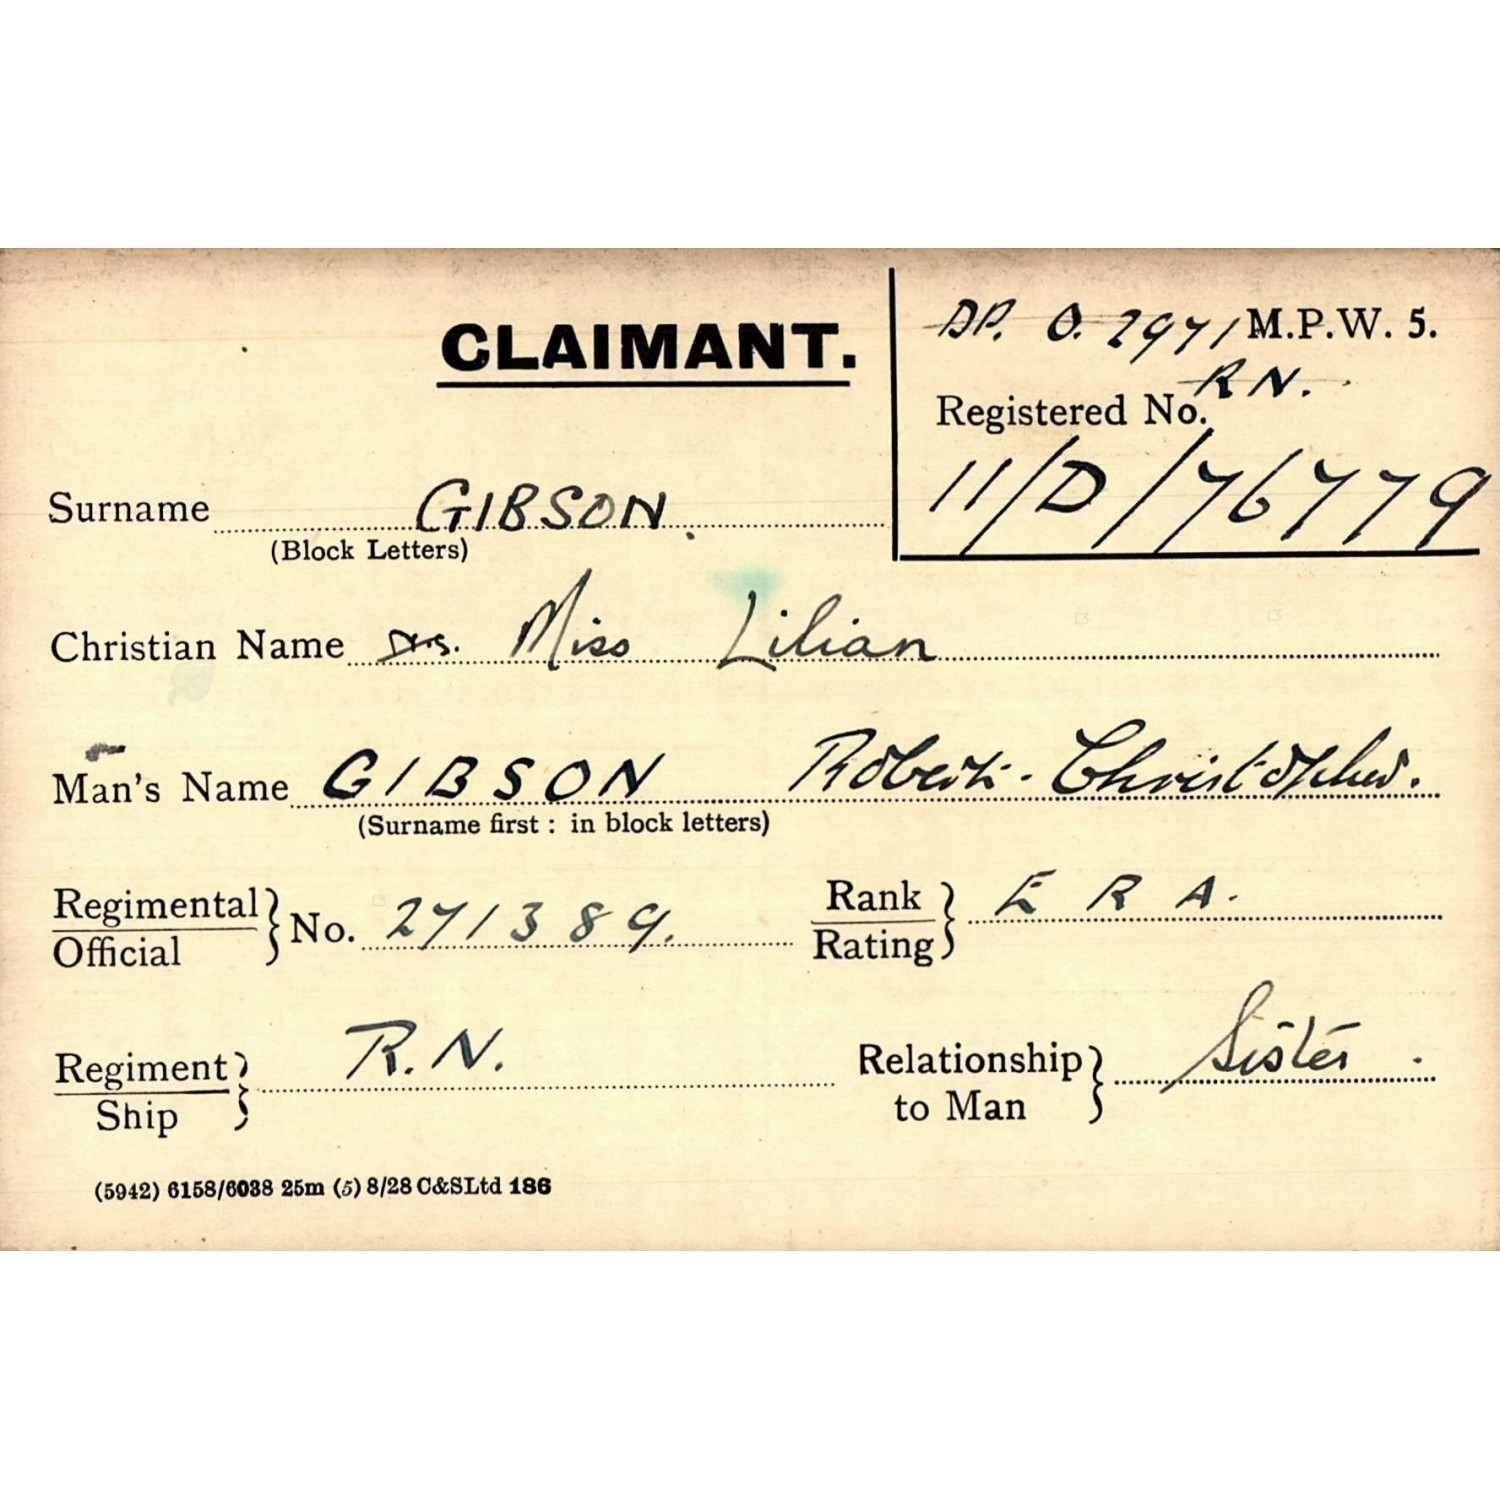 CLAIMANT.
DP. O. 2971 M.P.W. 5.
R N.
Registered No.
11/D/76779
Surname GIBSON.
(Block Letters)
Christian Name Miss Lilian
Man's Name GIBSON Robert. Christopher.
(Surname first : in block letters)
Regimental
Official } No. 271389.
Rank
Rating } E R A.
Regiment
Ship } R.N.
Relationship
to Man } Sister.
(5942) 6158/6038 25m (5) 8/28 C&SLtd 186